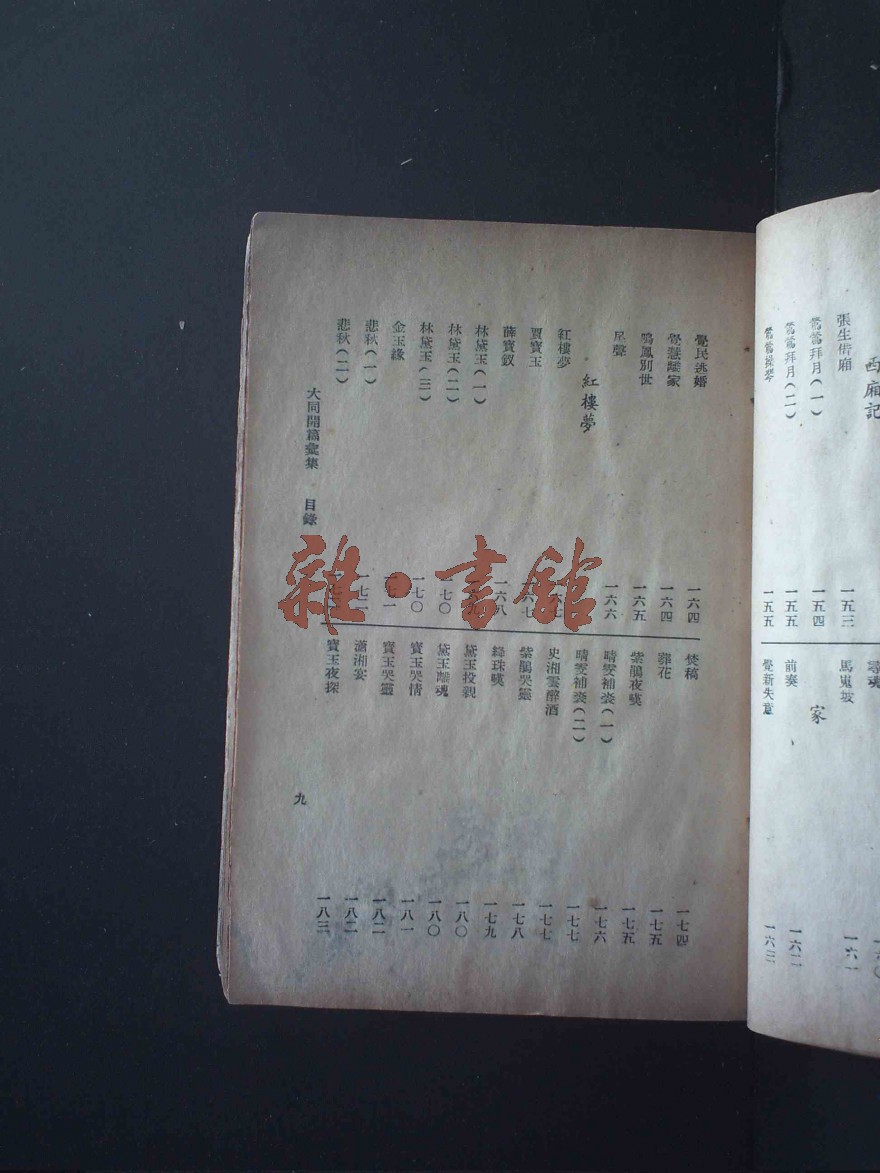 西廂記
張生借廂
一五三
鶯鶯拜月(一)
一五四
鶯鶯拜月(二)
一五五
鶯鶯操琴
一五五
尋魂
馬嵬坡
一六一
家
前奏
一六二
覺新失意
一六三
覺民逃婚
一六四
覺慧離家
一六四
鳴鳳別世
一六五
尾聲
一六六
紅樓夢
紅樓夢
賈寶玉
薛寶釵
林黛玉(一)
一六八
林黛玉(二)
林黛玉(三)
一七〇
金玉緣
悲秋(一)
悲秋(二)
焚稿
一七四
葬花
一七五
紫鵑夜嘆
一七五
晴雯補裘(一)
一七六
晴雯補裘(二)
一七七
史湘雲醉酒
一七七
紫鵑哭靈
一七八
絳珠嘆
一七九
黛玉投親
一八〇
黛玉離魂
一八〇
寶玉哭情
一八一
寶玉哭靈
一八二
瀟湘宴
一八二
寶玉夜探
一八三
大同開篇彙集 目錄
九
雜·書館